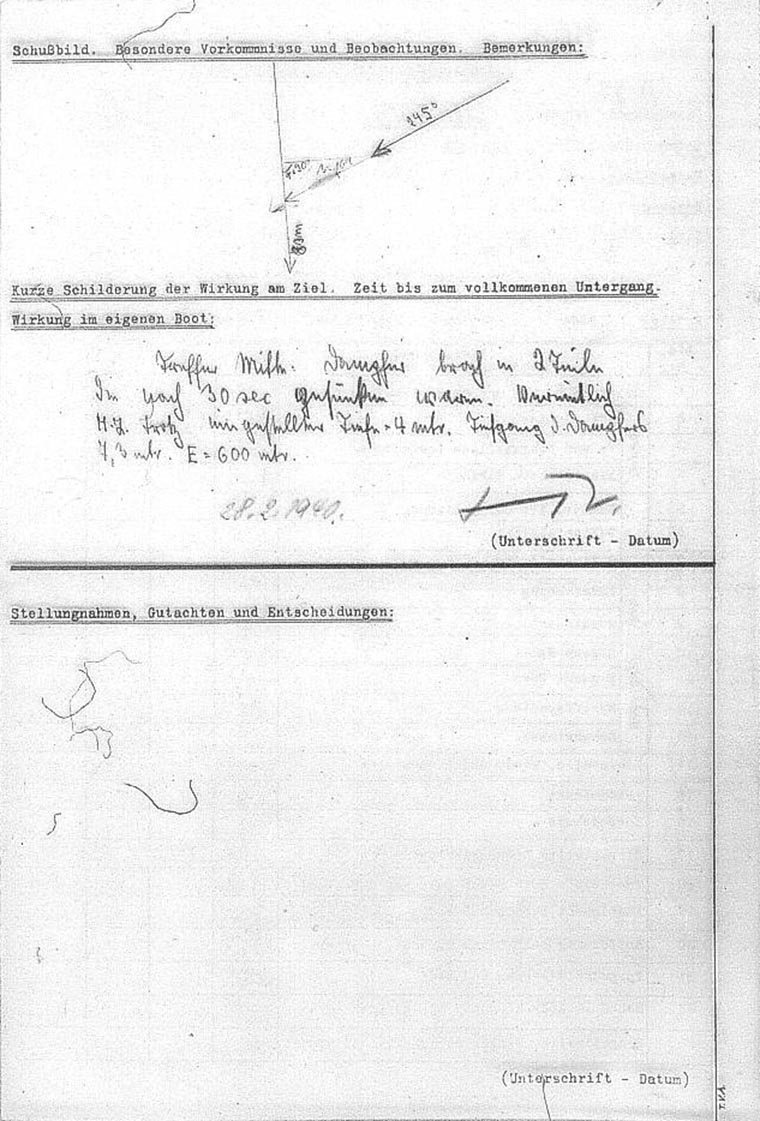 Schußbild. Besondere Vorkommnisse und Beobachtungen. Bemerkungen:
245°
Kurze Schilderung der Wirkung am Ziel. Zeit bis zum vollkommenen Untergang.
Wirkung im eigenen Boot:
Treffer Mitte. Dampfer brach in 2 Teile
die nach 30 sec gesunken waren. Vermutlich
M.Z. trotz eingestellter Tiefe = 4 mtr. Tiefgang d. Dampfers
7,3 mtr. E = 600 mtr.
28.2.1940.
(Unterschrift - Datum)
Stellungnahmen, Gutachten und Entscheidungen:
(Unterschrift - Datum)
T.V.A.